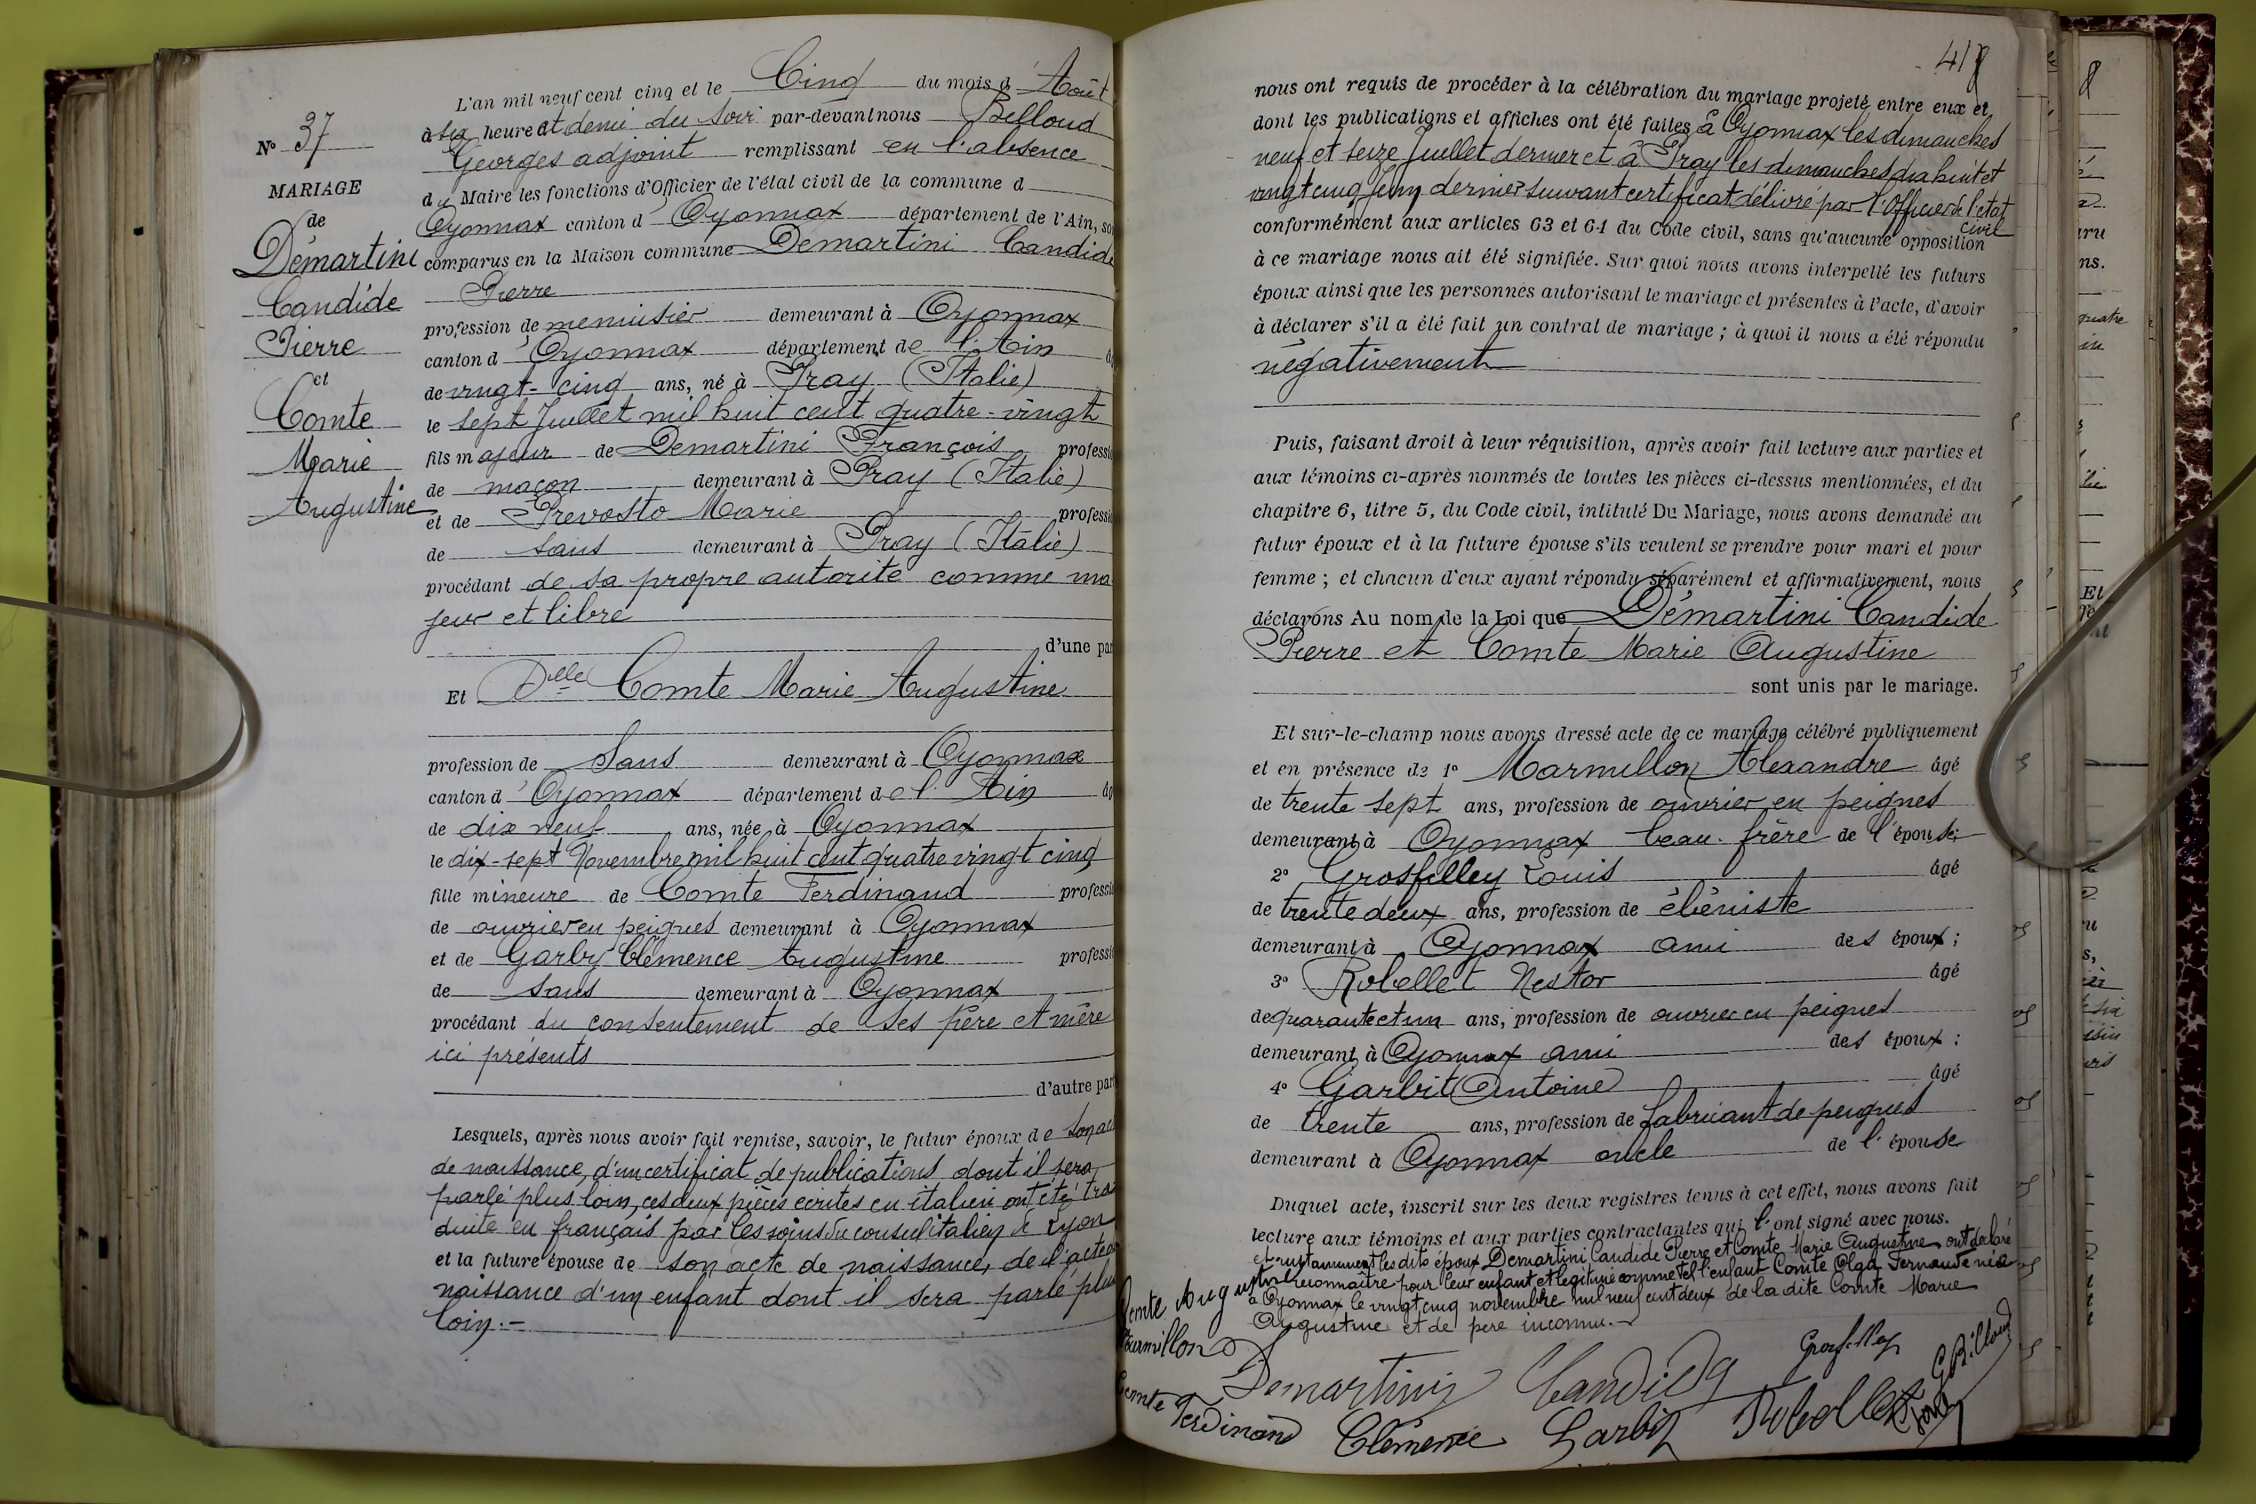 L'an mil neuf cent cinq et le Cinq du mois d'Août
à six heure et demi du soir par-devant nous Belloud
Georges adjoint remplissant en l'absence
du Maire les fonctions d'Officier de l'état civil de la commune d
Oyonnax canton d'Oyonnax département de l'Ain, so
comparus en la Maison commune Demartini Candide
Pierre
profession de menuisier demeurant à Oyonnax
canton d'Oyonnax département de l'Ain âg
de vingt-cinq ans, né à Pray (Italie)
le sept Juillet mil huit cent quatre-vingt
fils majeur de Demartini François professi
de maçon demeurant à Pray (Italie)
et de Prevosto Marie professi
de sans demeurant à Pray (Italie)
procédant de sa propre autorité comme ma
jeur et libre
d'une par
Et Delle Comte Marie Augustine
profession de Sans demeurant à Oyonnax
canton d'Oyonnax département de l'Ain âg
de dix neuf ans, née à Oyonnax
le dix-sept Novembre mil huit cent quatre vingt cinq
fille mineure de Comte Ferdinand professi
de ouvrier en peignes demeurant à Oyonnax
et de Garby Clémence Augustine professi
de sans demeurant à Oyonnax
procédant du consentement de ses père et mère
ici présents
d'autre part
Lesquels, après nous avoir fait remise, savoir, le futur époux de son ac
de naissance, d'un certificat de publications dont il sera
parlé plus loin, ces deux pièces écrites en italien ont été tra
duite en français par les soins du consul italien à Lyon
et la future épouse de son acte de naissance, de l'acte de
naissance d'un enfant dont il sera parlé plus
loin.-
No 37
MARIAGE
de
Démartini
Candide
Pierre
et
Comte
Marie
Augustine
418
nous ont requis de procéder à la célébration du mariage projeté entre eux et
dont les publications et affiches ont été faites à Oyonnax les dimanches
neuf et seize Juillet dernier et à Pray les dimanches dix huit et
vingt cinq Juin dernier suivant certificat délivré par l'Officier de l'état
civil
conformément aux articles 63 et 64 du Code civil, sans qu'aucune opposition
à ce mariage nous ait été signifiée. Sur quoi nous avons interpellé les futurs
époux ainsi que les personnes autorisant le mariage et présentes à l'acte, d'avoir
à déclarer s'il a été fait un contrat de mariage ; à quoi il nous a été répondu
négativement
Puis, faisant droit à leur réquisition, après avoir fait lecture aux parties et
aux témoins ci-après nommés de toutes les pièces ci-dessus mentionnées, et du
chapitre 6, titre 5, du Code civil, intitulé Du Mariage, nous avons demandé au
futur époux et à la future épouse s'ils veulent se prendre pour mari et pour
femme ; et chacun d'eux ayant répondu séparément et affirmativement, nous
déclarons Au nom de la Loi que Démartini Candide
Pierre et Comte Marie Augustine
sont unis par le mariage.
Et sur-le-champ nous avons dressé acte de ce mariage célébré publiquement
et en présence de 1° Marmillon Alexandre âgé
de trente sept ans, profession de ouvrier en peignes
demeurant à Oyonnax beau-frère de l'épouse;
2° Grosfilley Louis âgé
de trente deux ans, profession de ébéniste
demeurant à Oyonnax ami des époux ;
3° Robellet Nestor âgé
de quarante et un ans, profession de ouvrier en peignes
demeurant à Oyonnax ami des époux ;
4° Garbit Antoine âgé
de trente ans, profession de fabricant de peignes
demeurant à Oyonnax oncle de l'épouse
Duquel acte, inscrit sur les deux registres tenus à cet effet, nous avons fait
lecture aux témoins et aux parties contractantes qui l'ont signé avec nous.
et instamment les dits époux Demartini Candide Pierre et Comte Marie Augustine, ont déclaré
reconnaître pour leur enfant et légitimé comme tel l'enfant Comte Olga Fernande née
à Oyonnax le vingt cinq novembre mil neuf cent deux de la dite Comte Marie
Augustine et de père inconnu.
Comte Augustine
Marmillon
Demartini Candida
Grosfilley
G Belloud
Comte Ferdinand
Clémence Garbit
Robellet